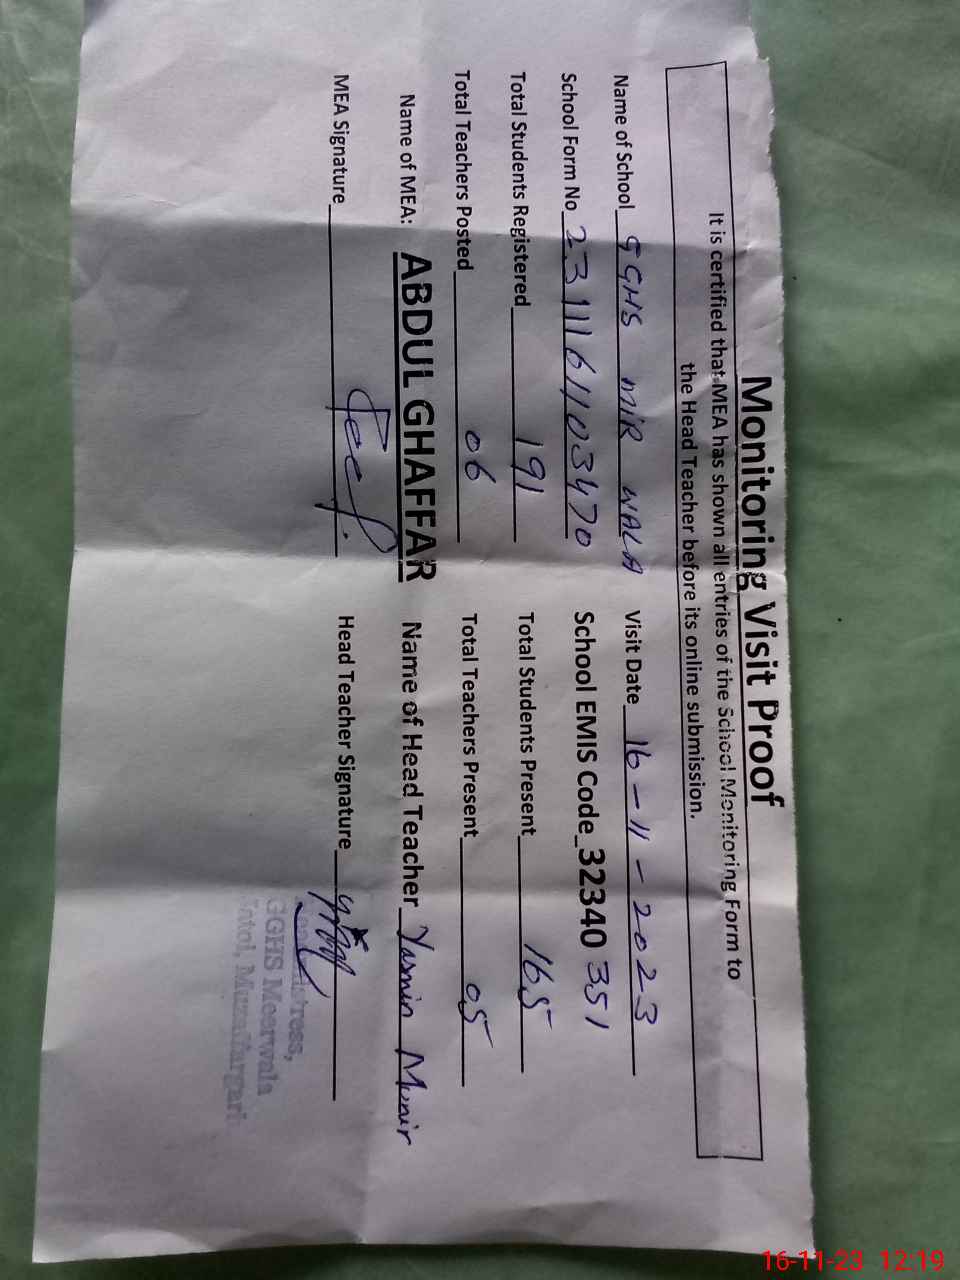 Monitoring Visit Proof
It is certified that MEA has shown all entries of the School Monitoring Form to
the Head Teacher before its online submission.
Name of School GGHS MIR WALA Visit Date 16-11-2023
School Form No 2311161103470 School EMIS Code_32340 351
Total Students Registered 191 Total Students Present 165
Total Teachers Posted 06 Total Teachers Present 05
Name of MEA: ABDUL GHAFFAR Name of Head Teacher Yasmin Munir
MEA Signature Head Teacher Signature
GGHS Meerwala
16-11-23 12:19